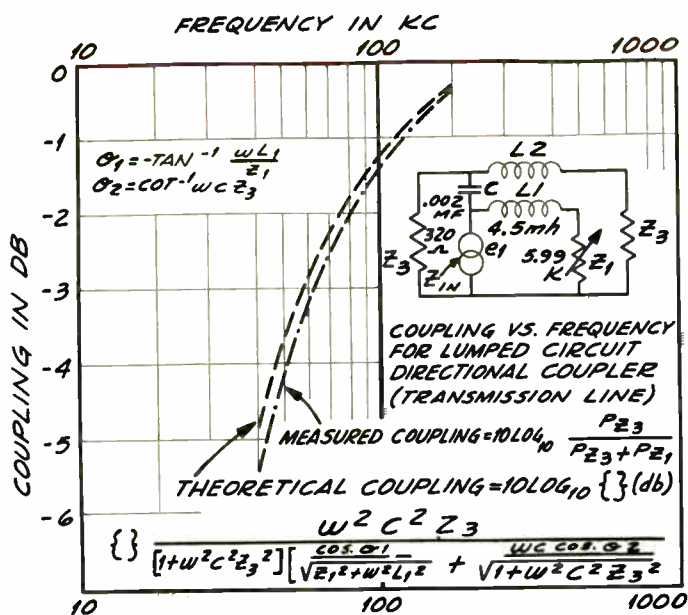 FREQUENCY IN KC
10 100 1000
COUPLING IN DB
0
-1
-2
-3
-4
-5
-6
σ1=-TAN⁻¹ ωL1/Z1
σ2=COT⁻¹ ωCZ3
L2
C L1
.002 MF
4.5mh
320 Ω
Z3
e1
5.99 K
Z1
Z3
ZIN
COUPLING VS. FREQUENCY
FOR LUMPED CIRCUIT
DIRECTIONAL COUPLER
(TRANSMISSION LINE)
MEASURED COUPLING=10LOG10 PZ3/PZ3+PZ1
THEORETICAL COUPLING=10LOG10 {}(db)
{} ω²C²Z3/[1+ω²C²Z3²][COS.σ1/√Z1²+ω²L1² + ωC COS.σ2/√1+ω²C²Z3²
10 100 1000